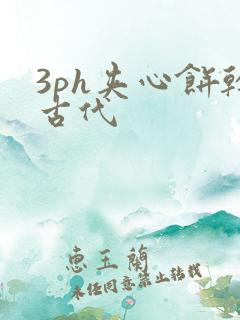 3ph夹心餅乾
古代
惠玉蘭
未经同意禁止转载